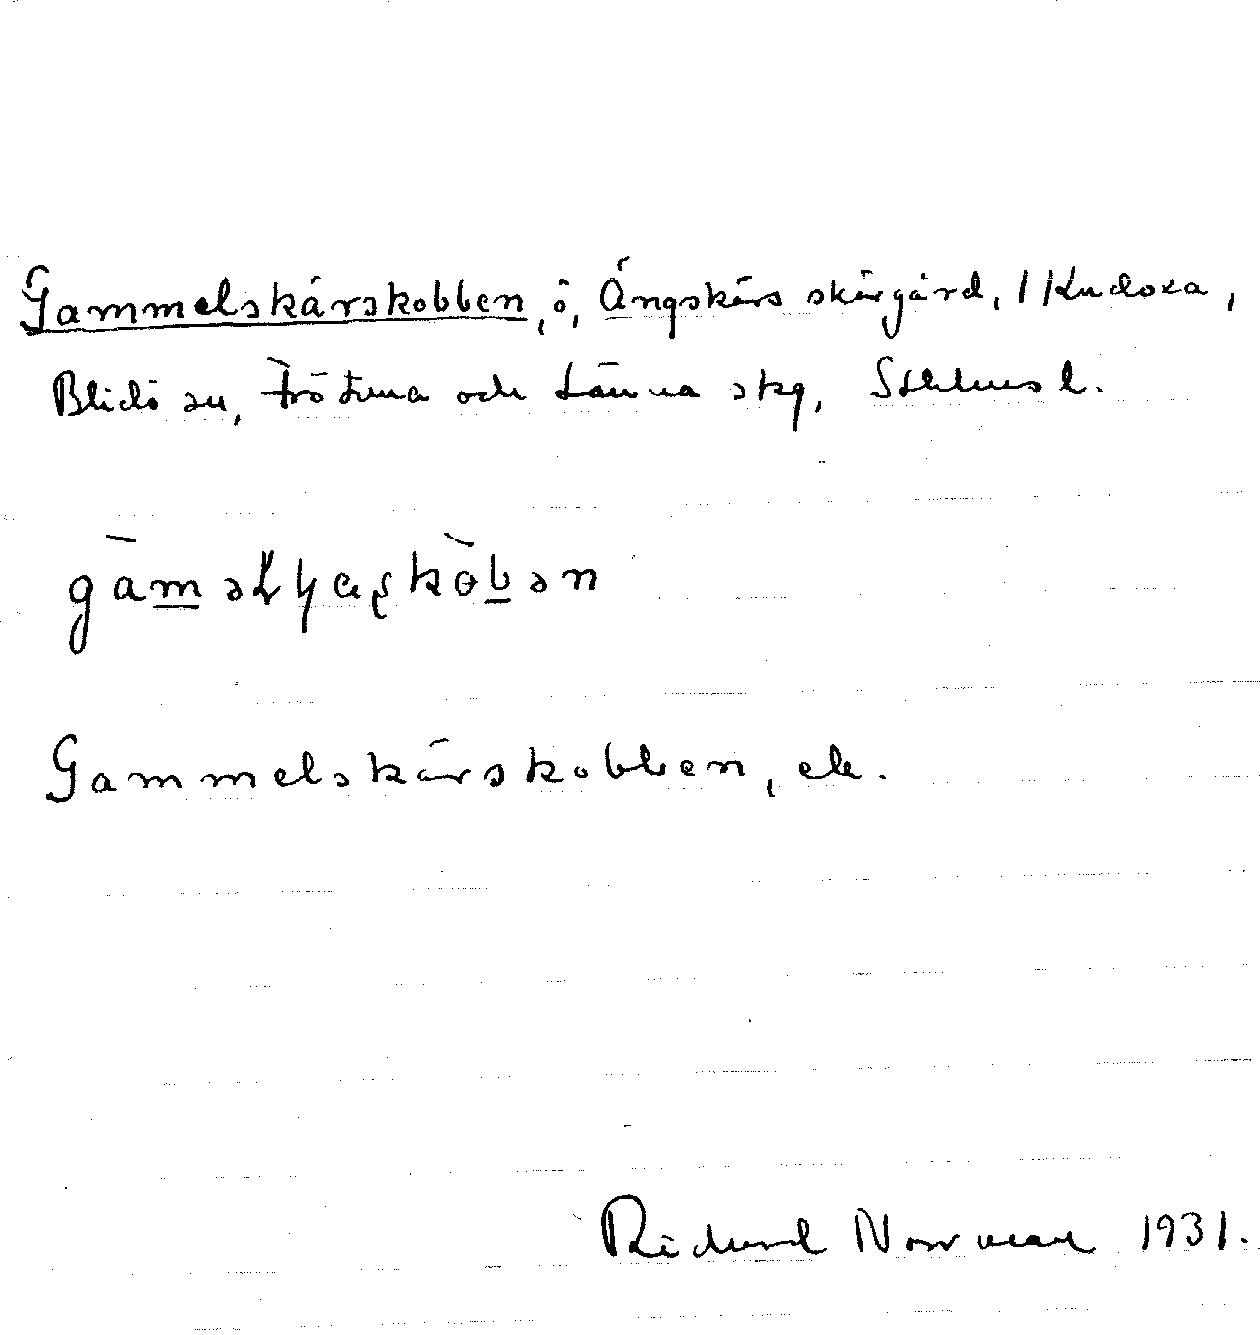 Gammelskärskobben, ö, Ängskärs skärgård, / Kudoxa,
Blidö sn, Frötuna och Länna skg, Sthlms l.
gàməlʃɑʂkòbən
Gammelskärskobben, ek.
Rickard Norrman 1931.